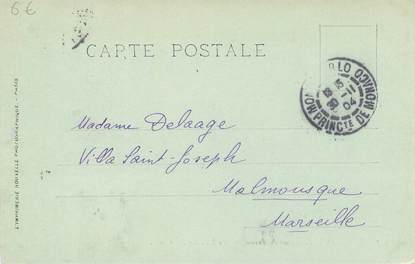 6€
CARTE POSTALE
PRINCTE DE MONACO
Madame Delaage
Villa Saint-Joseph
Malmousque
Marseille
L'IMPRIMERIE NOUVELLE PHOTOGRAPHIQUE - PARIS